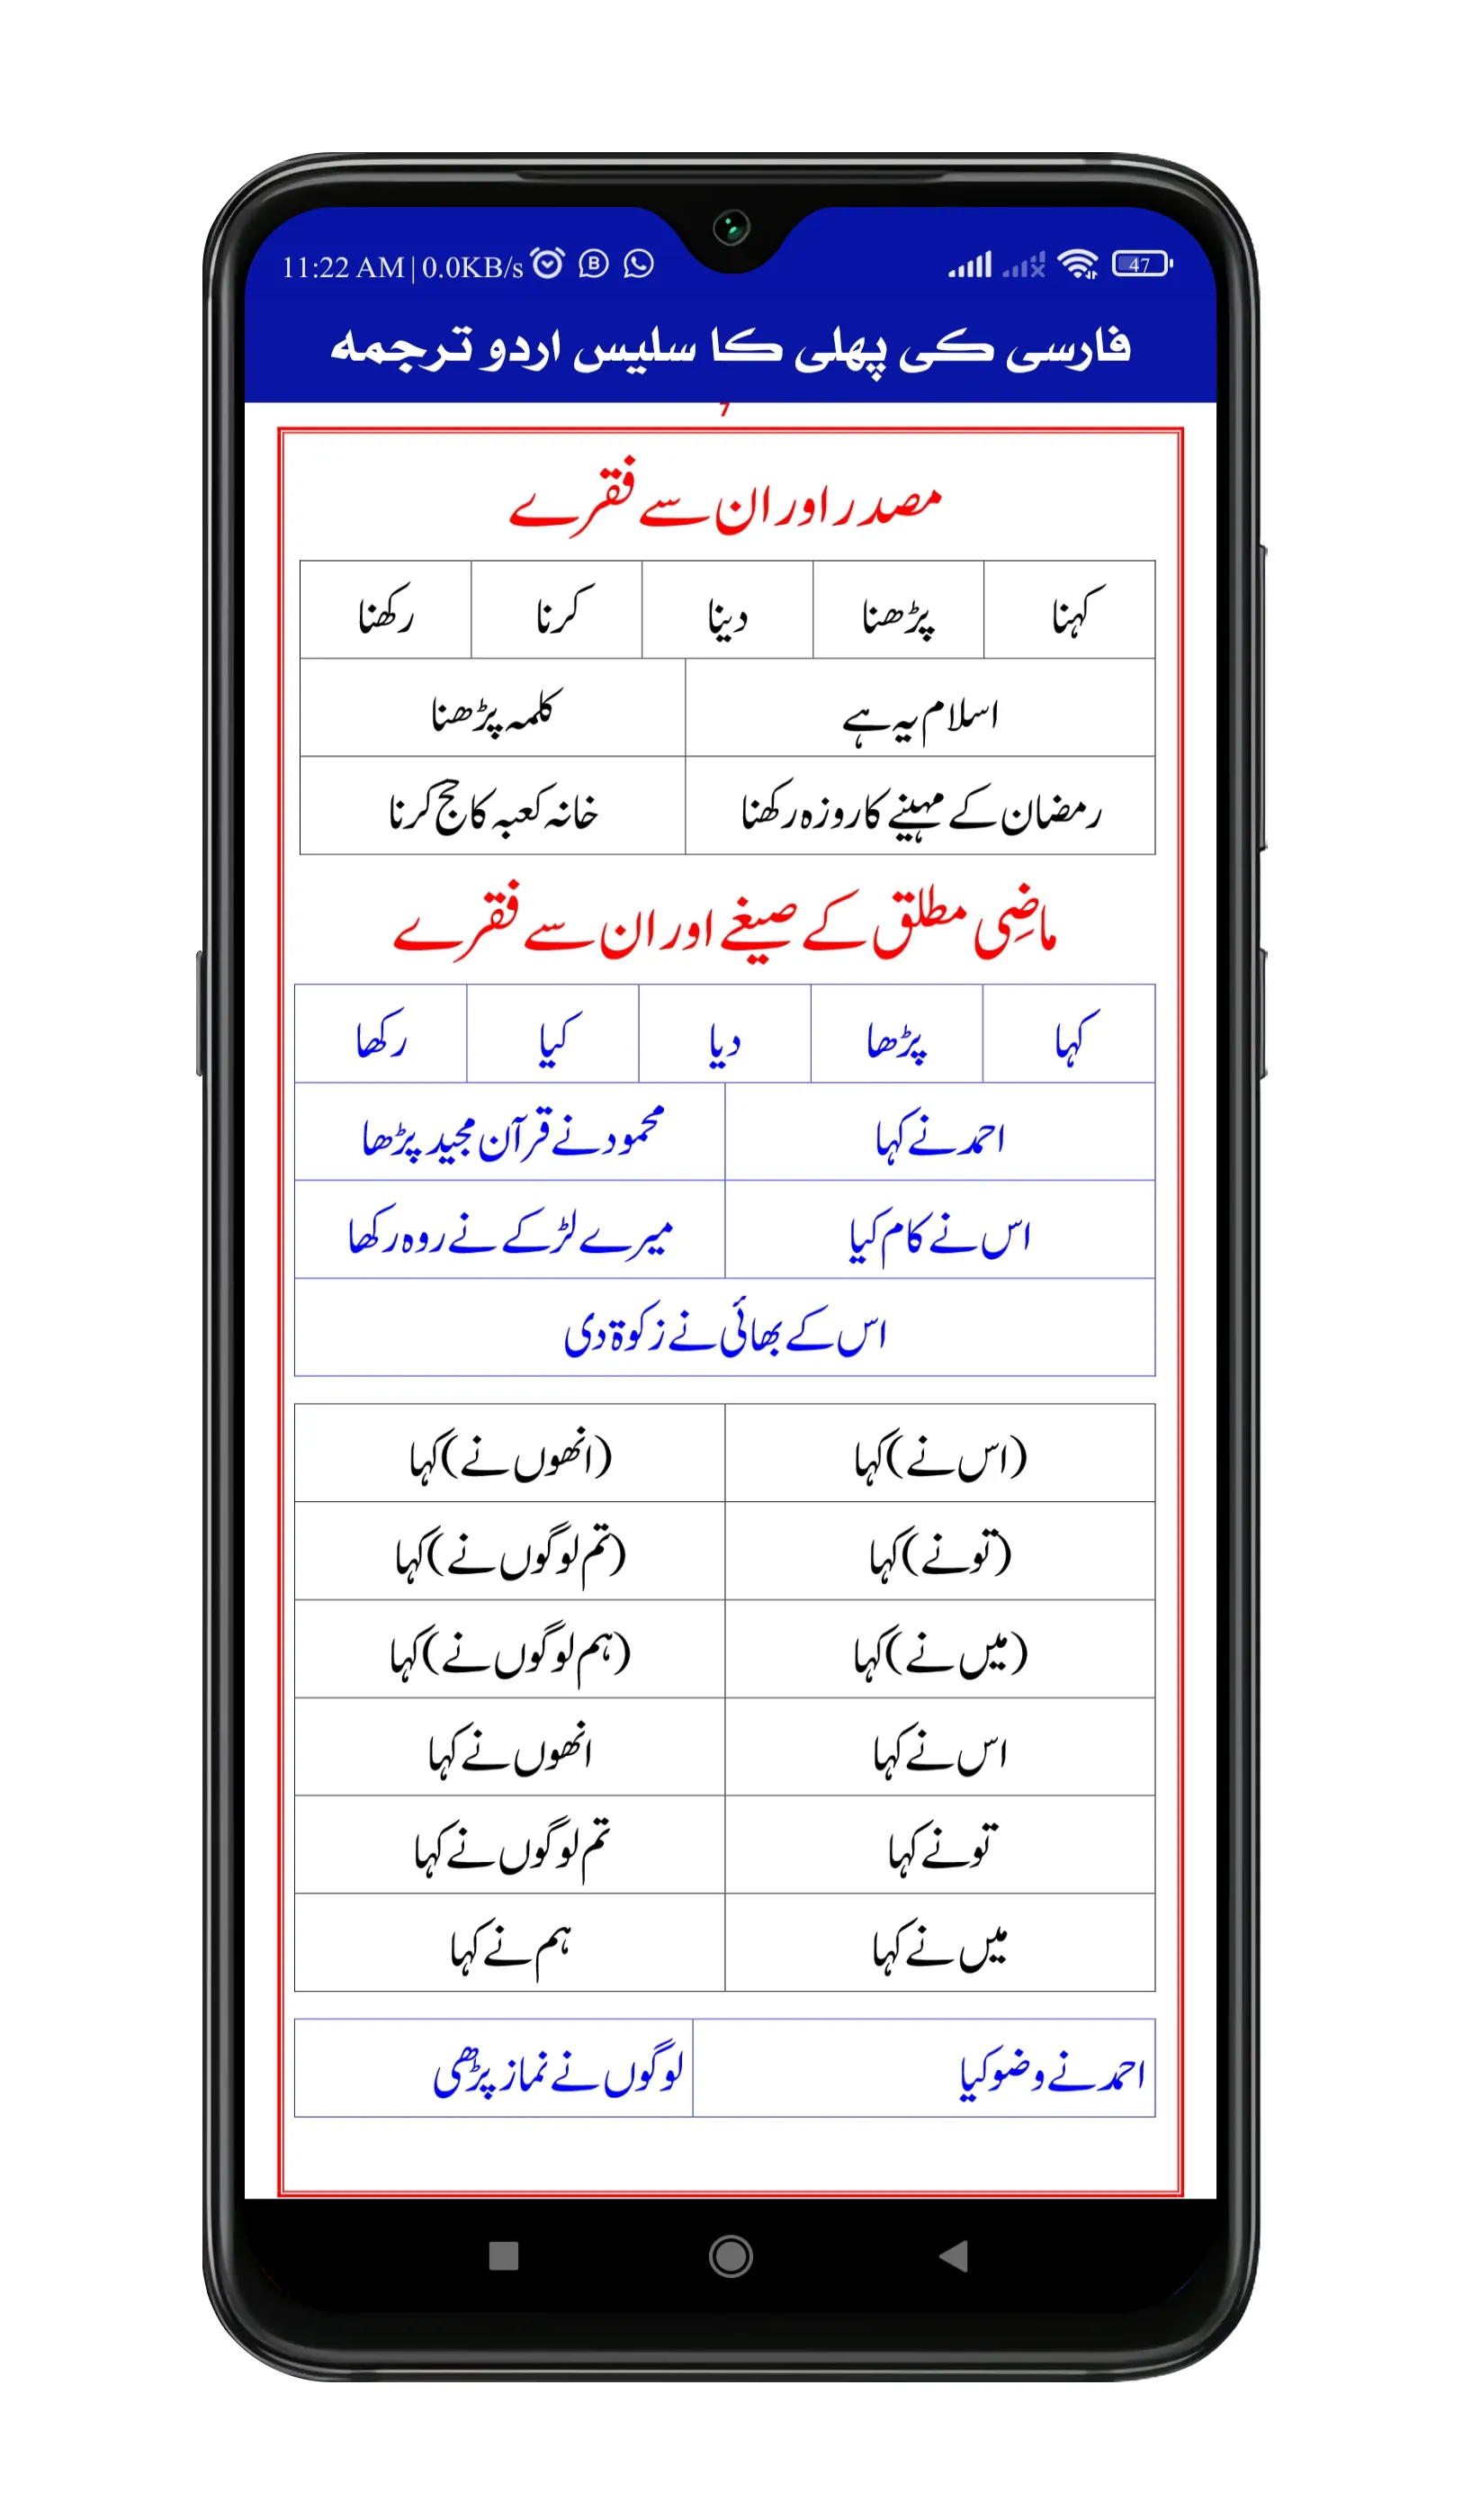 11:22 AM | 0.0KB/s 47
فارسی کی پہلی کا سلیس اردو ترجمہ
7
مصدر اور ان سے فقرے
کہنا پڑھنا دینا کرنا رکھنا
اسلام یہ ہے کلمہ پڑھنا
رمضان کے مہینے کا روزہ رکھنا خانہ کعبہ کا حج کرنا
ماضِی مطلق کے صیغے اور ان سے فقرے
کہا پڑھا دیا کیا رکھا
احمد نے کہا محمود نے قرآن مجید پڑھا
اس نے کام کیا میرے لڑکے نے روہ رکھا
اس کے بھائی نے زکوۃ دی
(اس نے) کہا (انھوں نے) کہا
(تو نے) کہا (تم لوگوں نے) کہا
(میں نے) کہا (ہم لوگوں نے) کہا
اس نے کہا انھوں نے کہا
تو نے کہا تم لوگوں نے کہا
میں نے کہا ہم نے کہا
احمد نے وضو کیا لوگوں نے نماز پڑھی